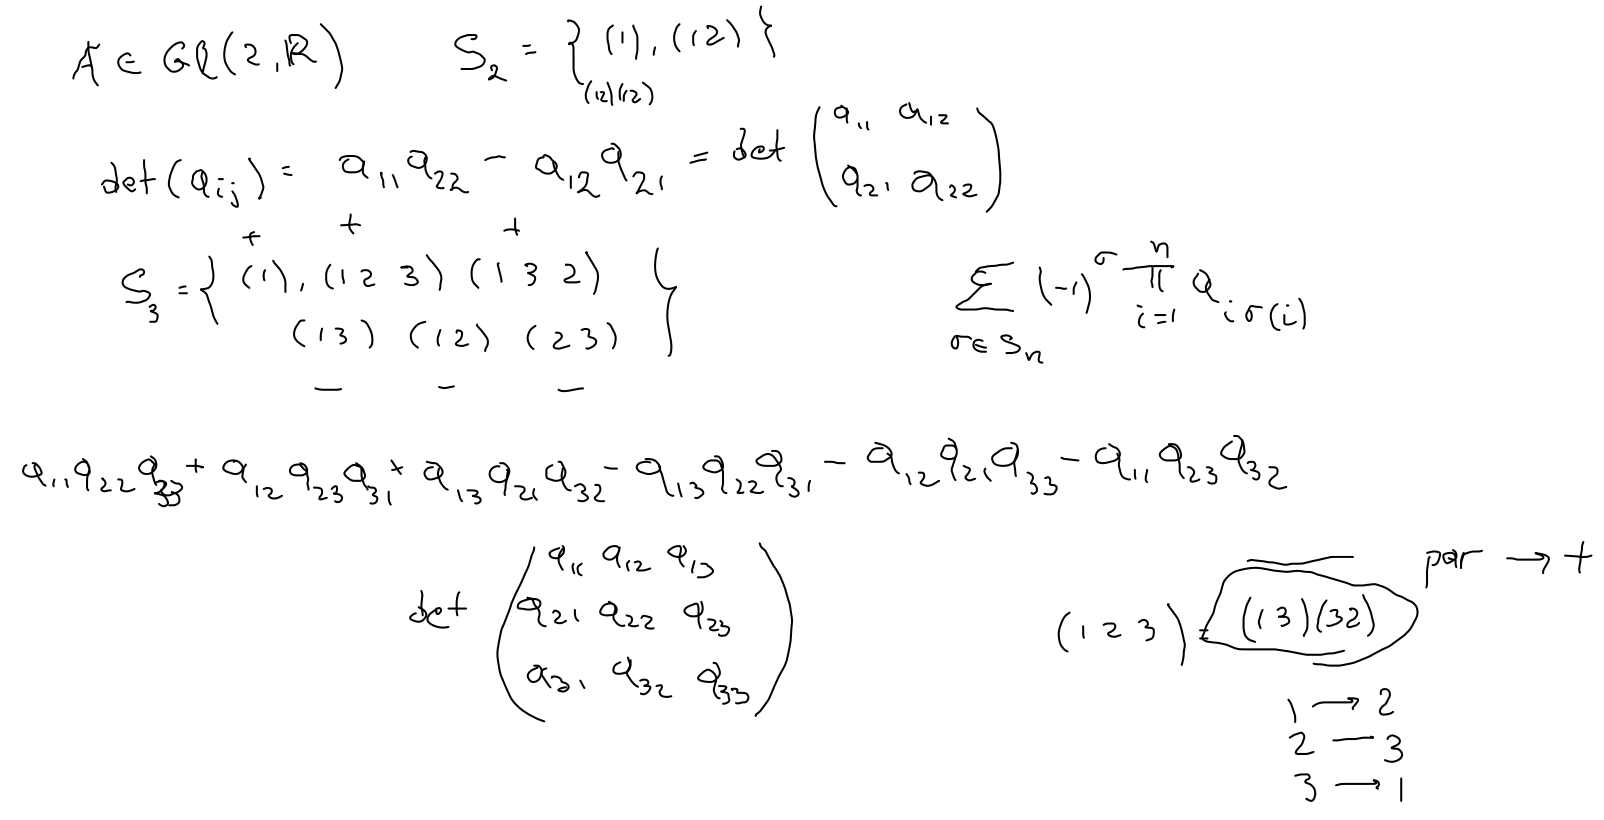 A ∈ Gl(2,ℝ) S₂ = { (1), (12) }
(12)(12)
det(aᵢⱼ) = a₁₁a₂₂ − a₁₂a₂₁ = det ( a₁₁ a₁₂
a₂₁ a₂₂ )
+ + +
S₃ = { (1), (1 2 3) (1 3 2)
(13) (12) (23) }
− − −
∑ (-1)^σ ∏ a_{iσ(i)}
n
i=1
σ∈Sₙ
a₁₁a₂₂a₃₃ + a₁₂a₂₃a₃₁ + a₁₃a₂₁a₃₂ − a₁₃a₂₂a₃₁ − a₁₂a₂₁a₃₃ − a₁₁a₂₃a₃₂
det ( a₁₁ a₁₂ a₁₃
a₂₁ a₂₂ a₂₃
a₃₁ a₃₂ a₃₃ )
(1 2 3) = (13)(32) par → +
1 → 2
2 — 3
3 → 1